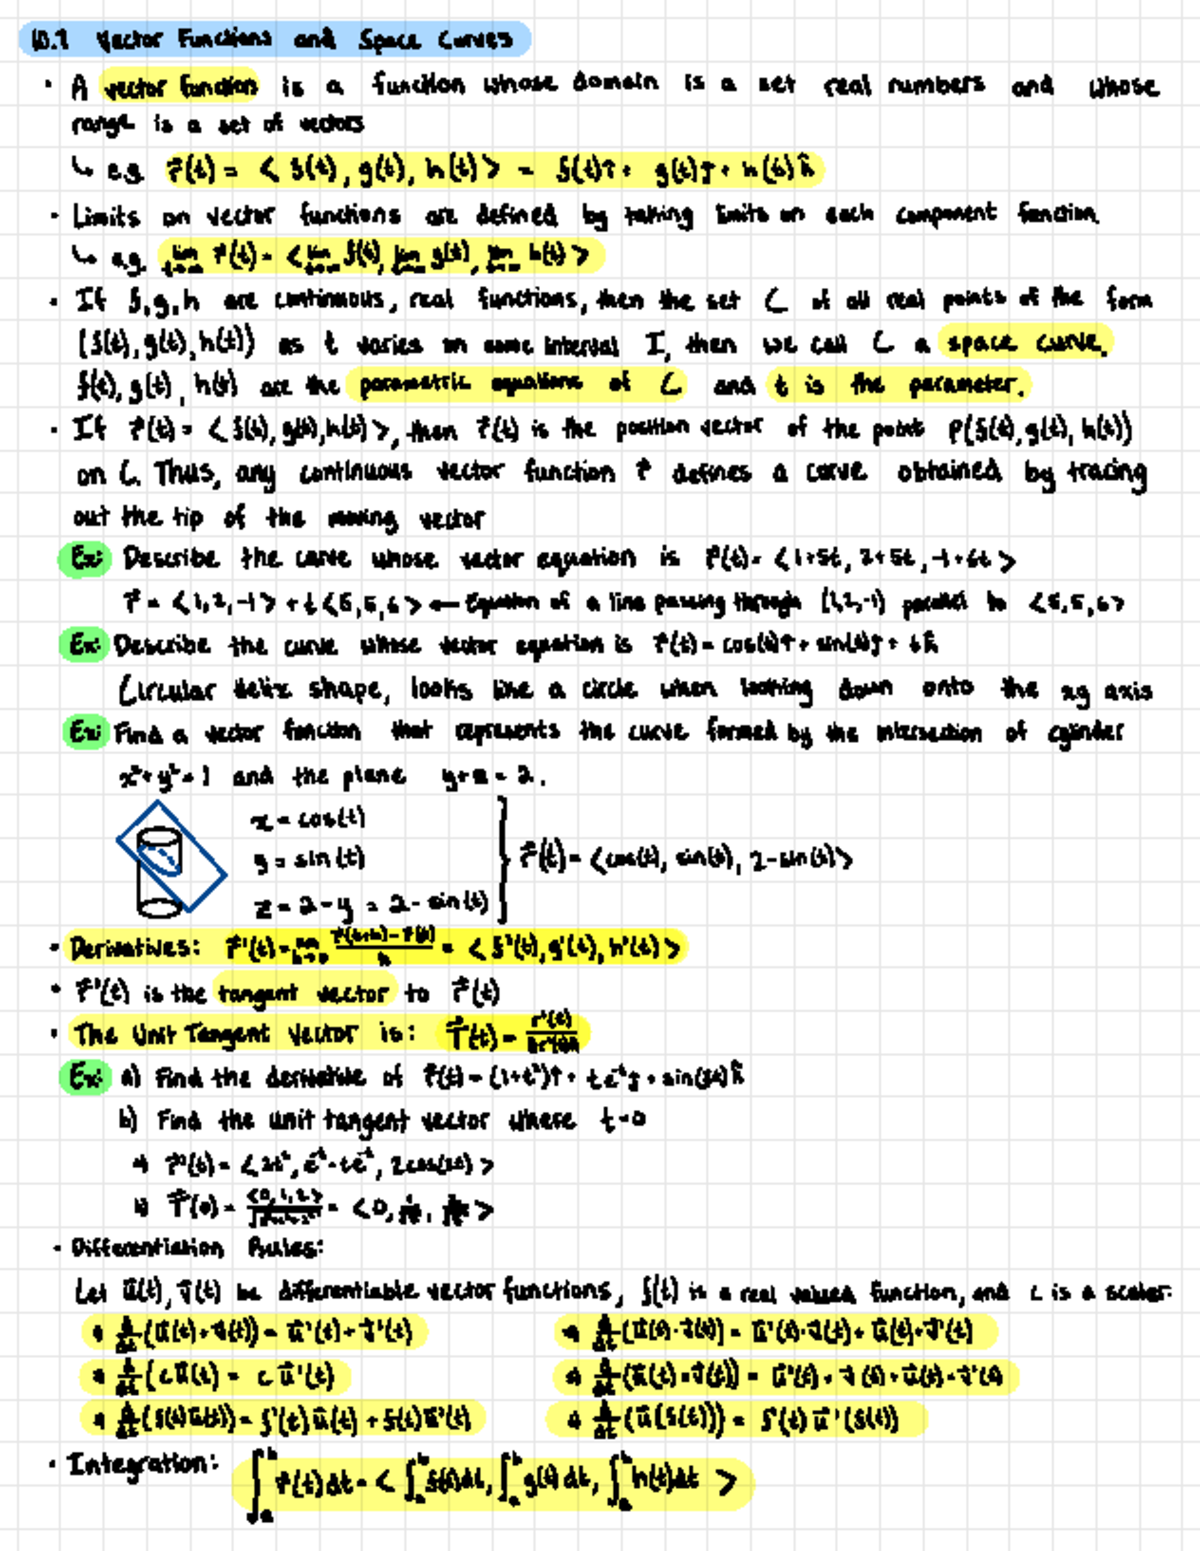 10.7 Vector Functions and Space Curves
· A vector function is a function whose domain is a set real numbers and whose
range is a set of vectors
↳ e.g. r⃗(t) = < f(t), g(t), h(t) > = f(t)î + g(t)ĵ + h(t)k̂
· Limits on vector functions are defined by taking limits on each component function.
↳ e.g. lim r⃗(t) = < lim f(t), lim g(t), lim h(t) >
· If f, g, h are continuous, real functions, then the set C of all real points of the form
(f(t), g(t), h(t)) as t varies on some interval I, then we call C a space curve.
f(t), g(t), h(t) are the parametric equations of C and t is the parameter.
· If r⃗(t) = < f(t), g(t), h(t) >, then r⃗(t) is the position vector of the point P(f(t), g(t), h(t))
on C. Thus, any continuous vector function r⃗ defines a curve obtained by tracing
out the tip of the moving vector
Ex: Describe the curve whose vector equation is r⃗(t) = < 1+5t, 2+5t, -1+6t >
r⃗ = < 1, 2, -1 > + t < 5, 5, 6 > ← Equation of a line passing through (1,2,-1) parallel to < 5, 5, 6 >
Ex: Describe the curve whose vector equation is r⃗(t) = cos(t)î + sin(t)ĵ + tk̂
Circular helix shape, looks like a circle when looking down onto the xy axis
Ex: Find a vector function that represents the curve formed by the intersection of cylinder
x² + y² = 1 and the plane y + z = 2.
x = cos(t)
y = sin(t)
} r⃗(t) = < cos(t), sin(t), 2 - sin(t) >
z = 2 - y = 2 - sin(t)
· Derivatives: r⃗'(t) = lim h→0 (r⃗(t+h) - r⃗(t))/h = < f'(t), g'(t), h'(t) >
· r⃗'(t) is the tangent vector to r⃗(t)
· The Unit Tangent Vector is: T⃗(t) = r'(t)/||r'(t)||
Ex: a) Find the derivative of r⃗(t) = (1+t³)î + te⁻ᵗĵ + sin(2t)k̂
b) Find the unit tangent vector where t=0
a) r⃗'(t) = < 3t², e⁻ᵗ - te⁻ᵗ, 2cos(2t) >
b) T⃗(0) = <0, 1, 2> = < 0, >
· Differentiation Rules:
Let u⃗(t), v⃗(t) be differentiable vector functions, f(t) is a real valued function, and c is a scalar:
d/dt (u⃗(t) + v⃗(t)) = u⃗'(t) + v⃗'(t) d/dt [u⃗(t) · v⃗(t)] = u⃗'(t) · v⃗(t) + u⃗(t) · v⃗'(t)
d/dt (c u⃗(t) = c u⃗'(t) d/dt (u⃗(t) × v⃗(t)) = u⃗'(t) × v⃗(t) + u⃗(t) × v⃗'(t)
d/dt (f(t) u⃗(t)) = f'(t) u⃗(t) + f(t) u⃗'(t) d/dt (u⃗(f(t))) = f'(t) u⃗'(f(t))
· Integration: ∫ₐᵇ r⃗(t) dt = < ∫ₐᵇ f(t) dt, ∫ₐᵇ g(t) dt, ∫ₐᵇ h(t) dt >